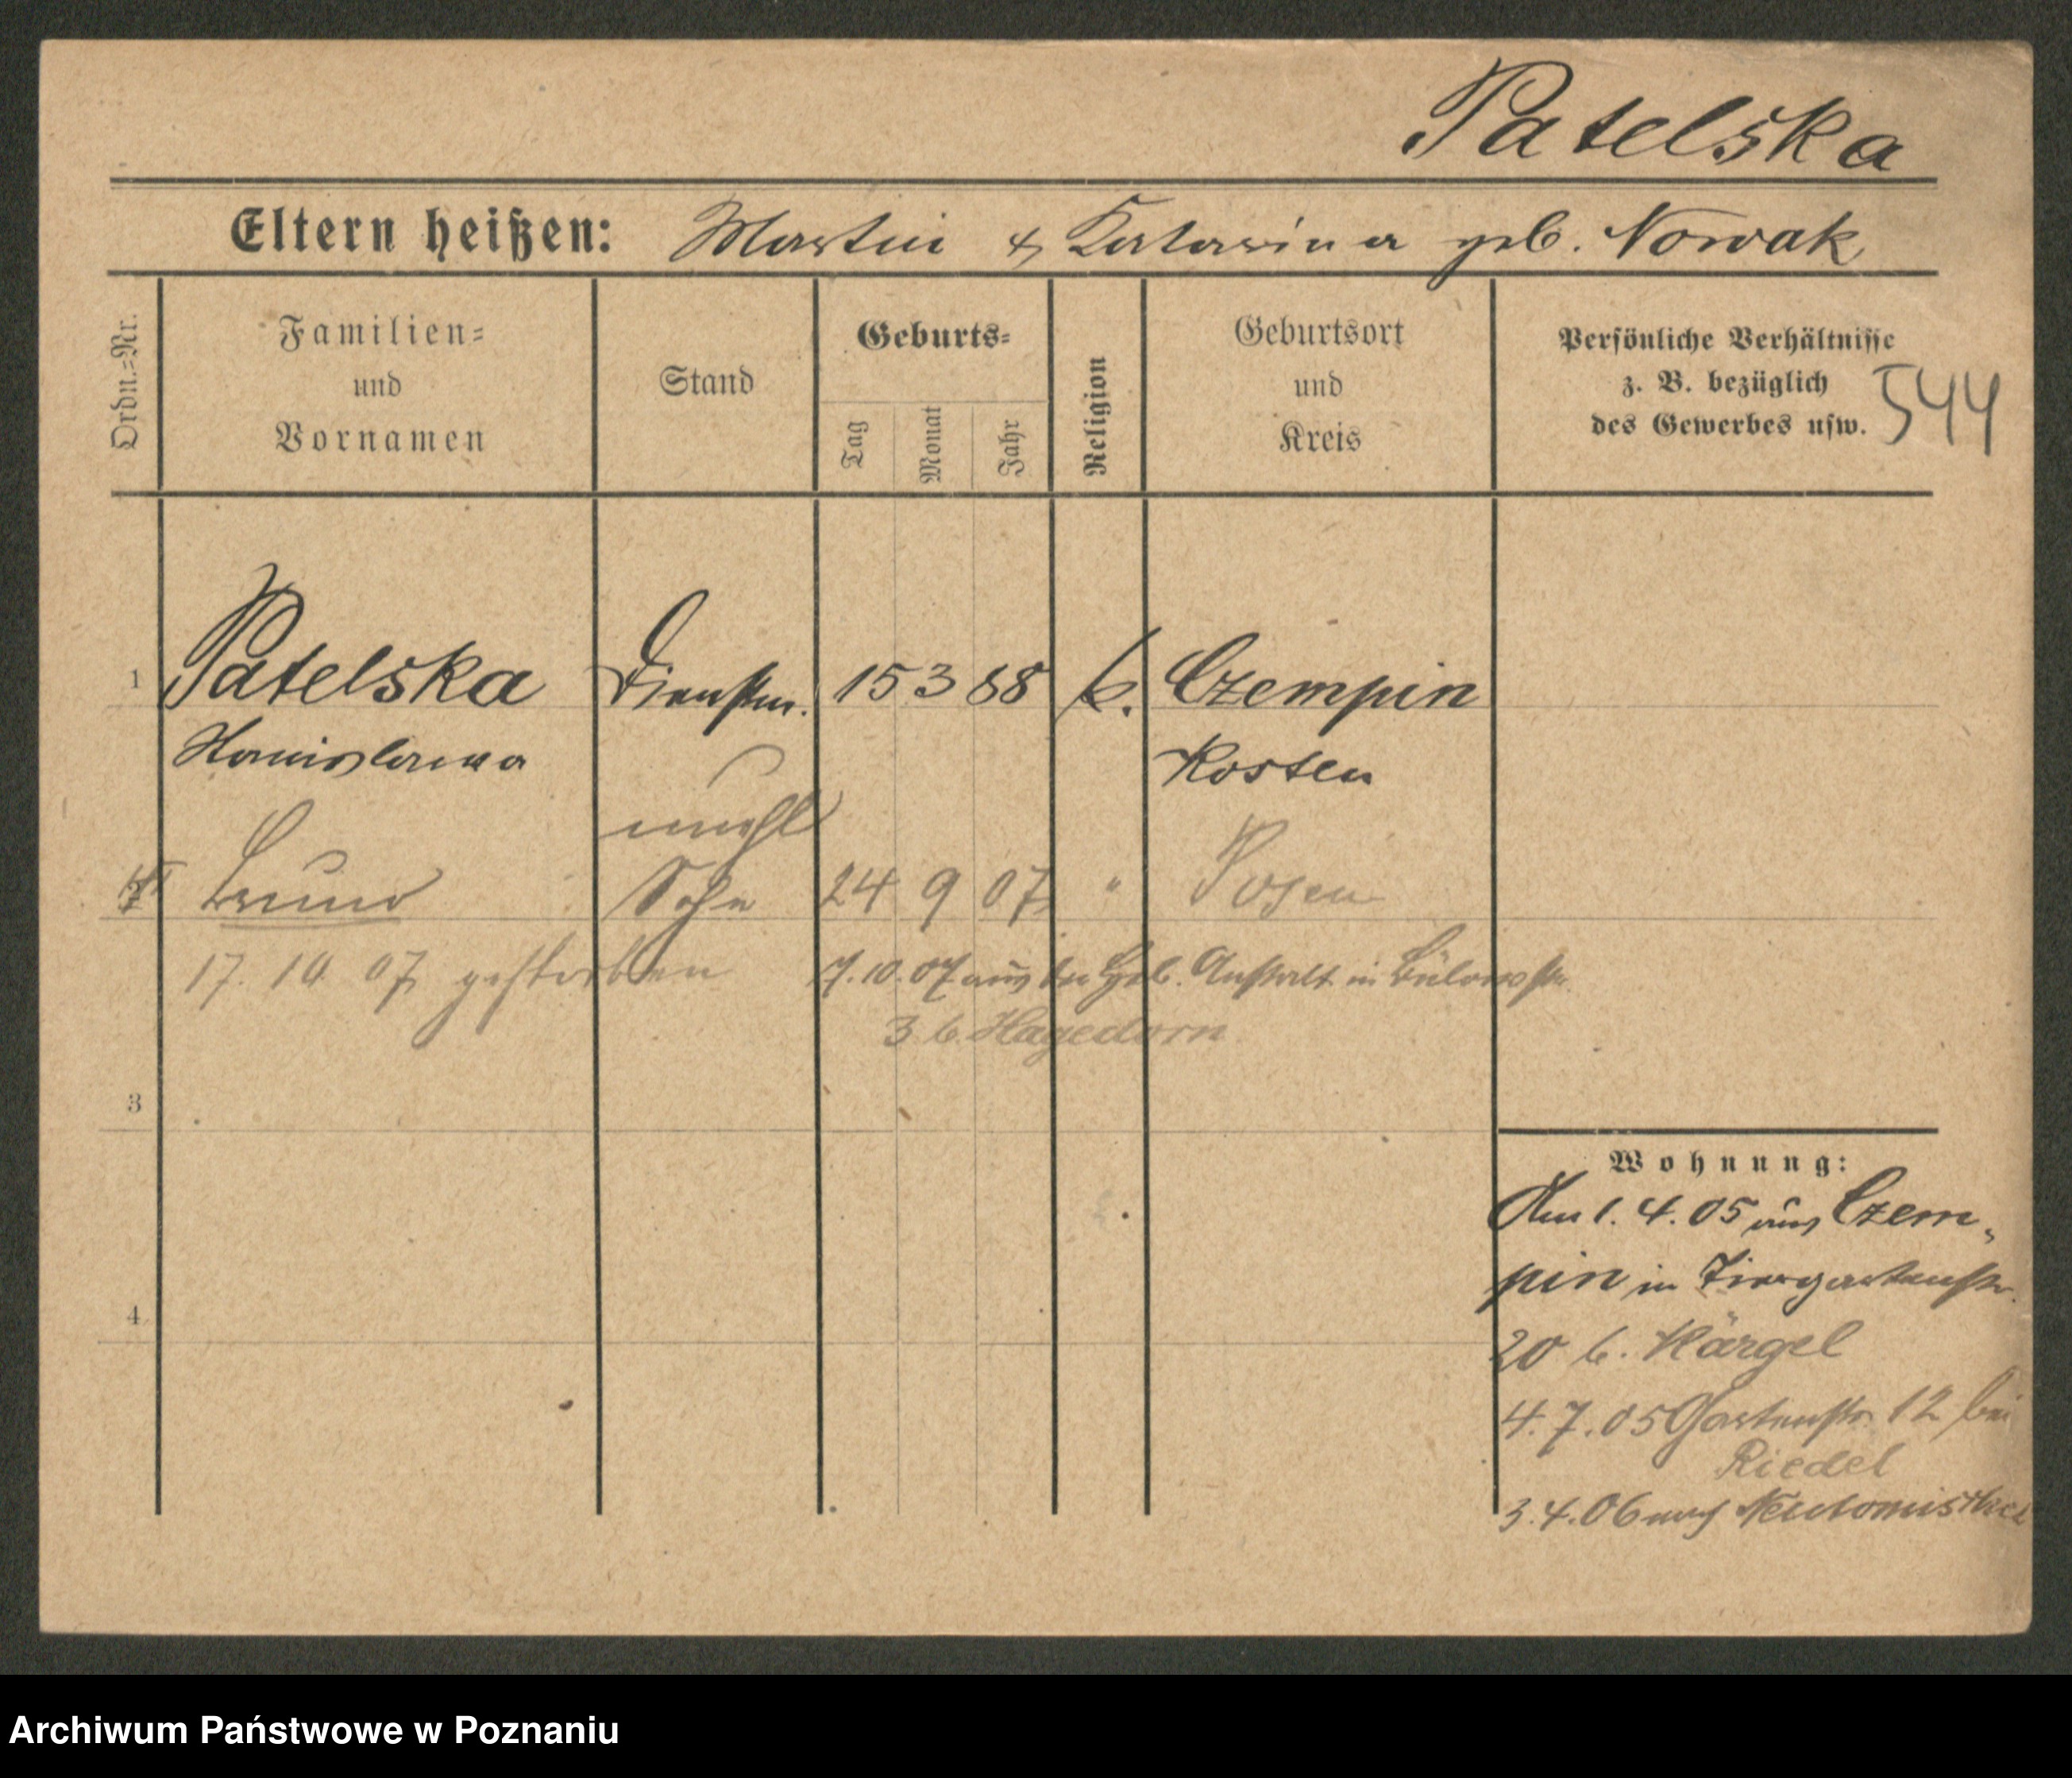 Patelska
Eltern heißen: Martin & Katarina geb. Nowak
Ordn.=Nr.
Familien=
und
Vornamen
Stand
Geburts=
Tag
Monat
Jahr
Religion
Geburtsort
und
Kreis
Persönliche Verhältnisse
z. B. bezüglich
des Gewerbes usw.
544
1 Patelska Dienstm. 15 3 88 k. Czempin
Stanislawa Kosten
unehl
Bruno Sohn 24 9 07 " Posen
17. 10. 07 gestorben
7. 10. 07 aus der Geb. Anstalt in Bülowstr.
3 b. Hagedorn
3
4
Wohnung:
Am 1. 4. 05 aus Czem-
pin in Tiergartenstr.
20 b. Härgel
4. 7. 05 Gartenstr. 12 bei
Riedel
3. 4. 06 nach Neutomischel
Archiwum Państwowe w Poznaniu